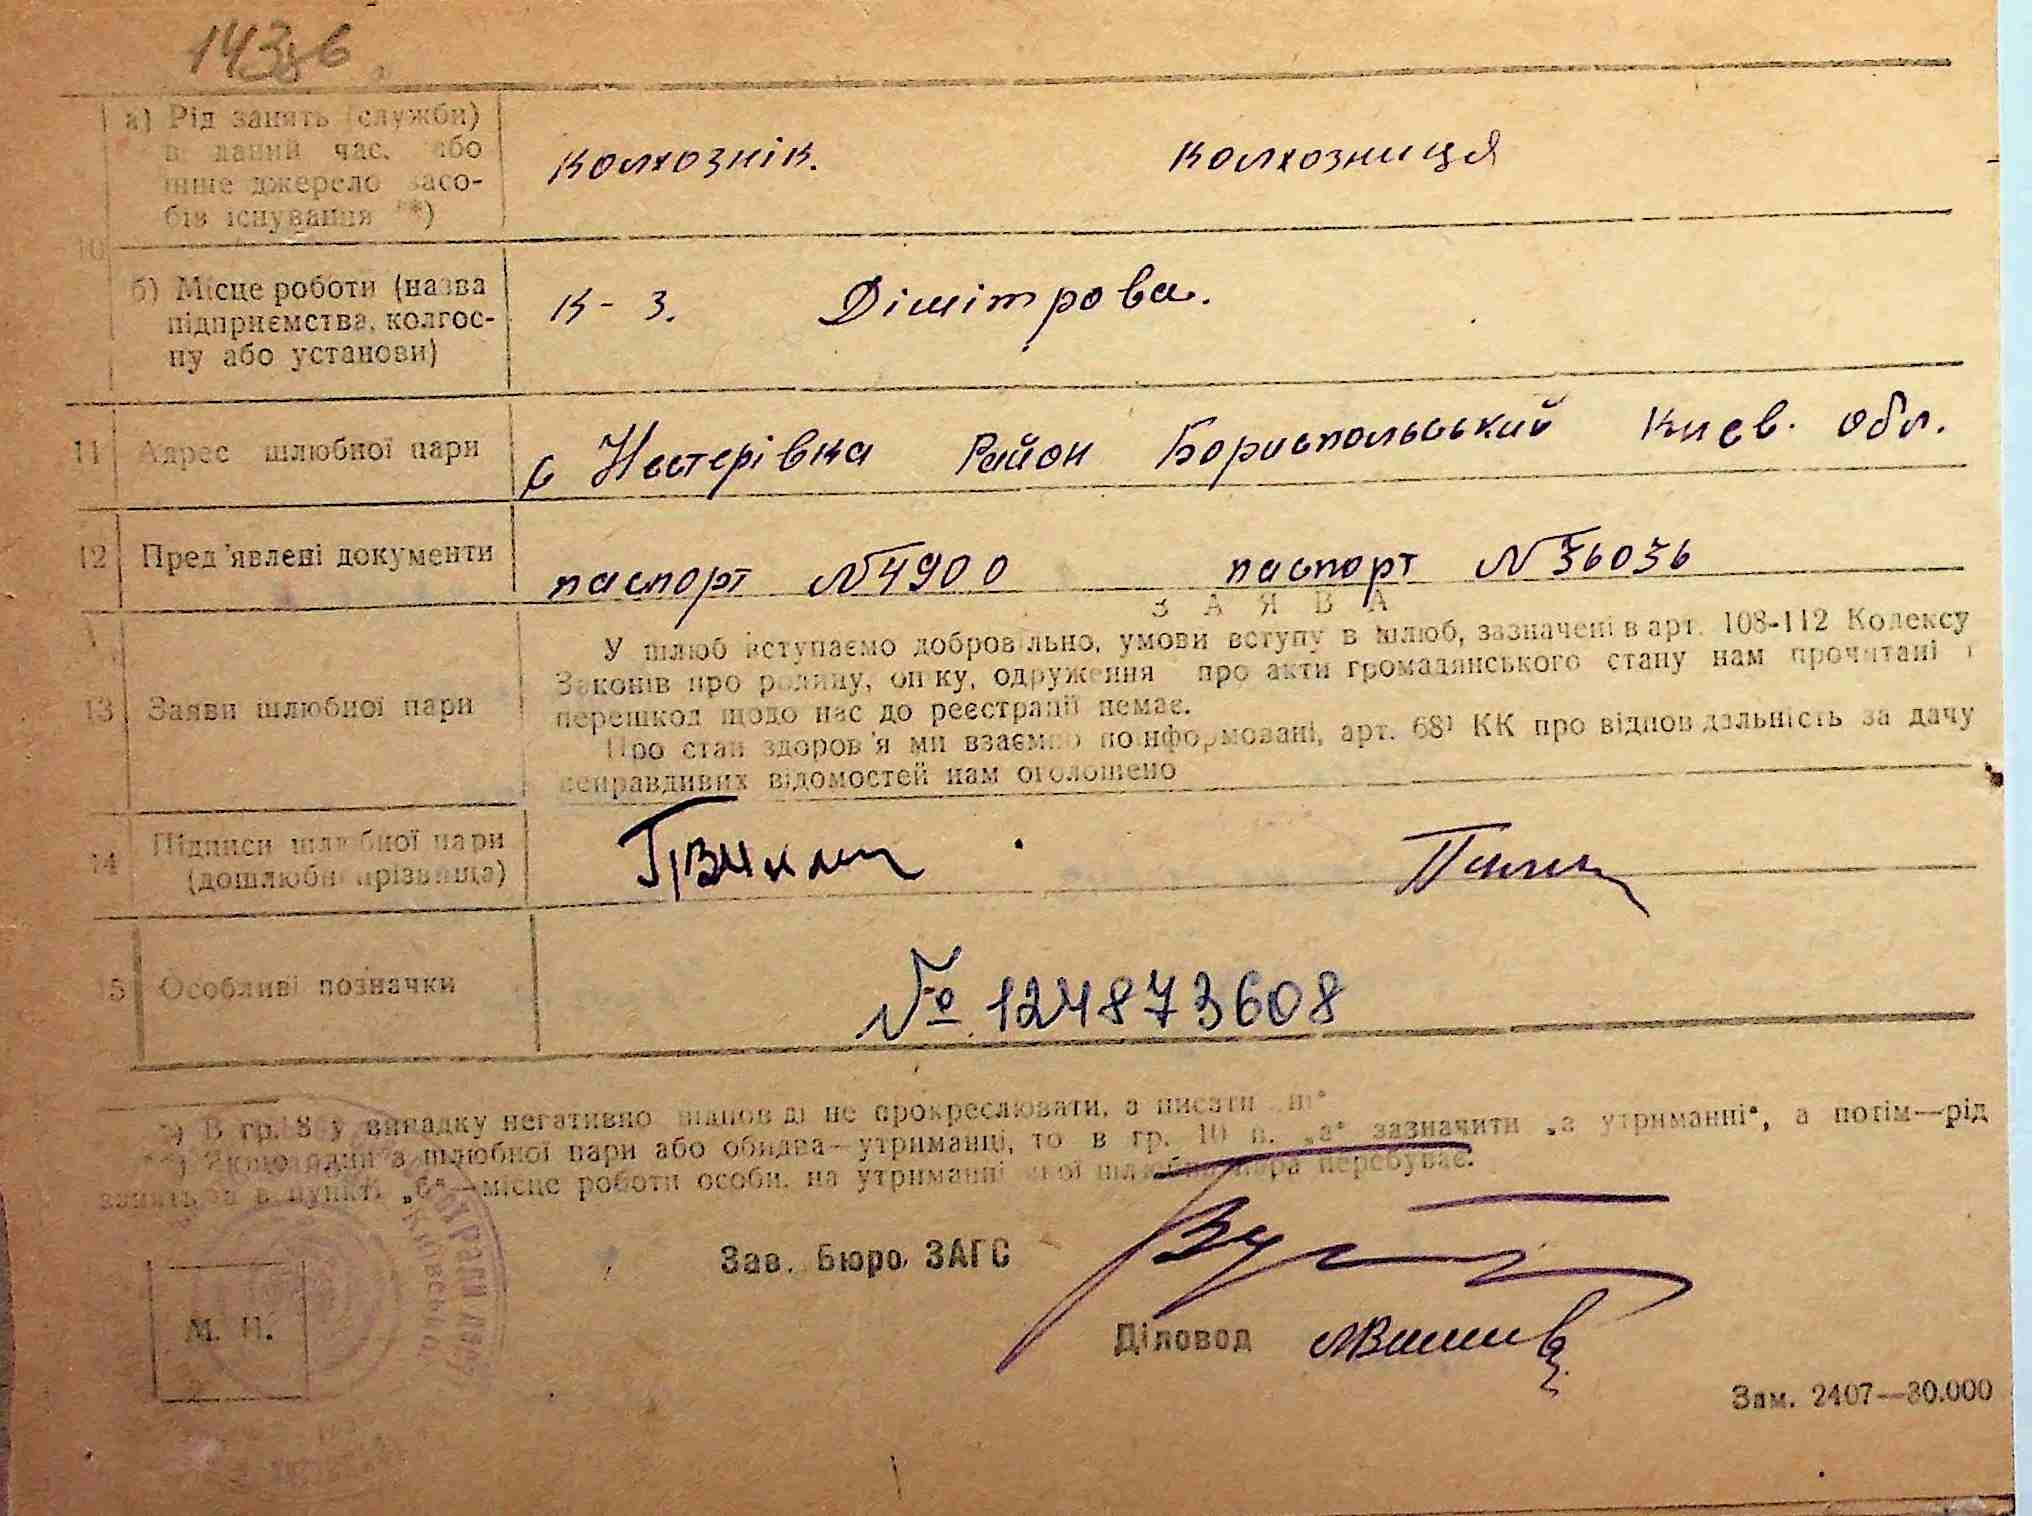 143
а) Рід занять (служби)
в даний час, або
інше джерело засо-
бів існування **)
колхознік. колхозниця
10
б) Місце роботи (назва
підприємства, колгос-
пу або установи)
к-з. Дімітрова.
11 Адрес шлюбної пари
с Нестерівка Район Бориспольський Києв. обл.
12 Пред'явлені документи
паспорт №4900 паспорт №36036
ЗАЯВА
13 Заяви шлюбної пари
У шлюб вступаємо добровільно, умови вступу в шлюб, зазначені в арт. 108-112 Кодексу
Законів про родину, опіку, одруження про акти громадянського стану нам прочитані і
перешкод щодо нас до реєстрації немає.
Про стан здоров'я ми взаємно поінформовані, арт. 68¹ КК про відповідальність за дачу
неправдивих відомостей нам оголошено
14 Підписи шлюбної пари
(дошлюбні прізвища)
15 Особливі позначки
№ 124873608
*) В гр. 8 у випадку негативної відповіді не прокреслювати, а писати „ні“
**) Якщо один з шлюбної пари або обидва—утриманці, то в гр. 10 п. „а“ зазначити „а утриманні“, а потім—рід
занять, а в пункті „б“—місце роботи особи, на утриманні якої шлюбна пара перебуває.
Зав. Бюро ЗАГС
М. П.
Діловод
Зам. 2407—30.000